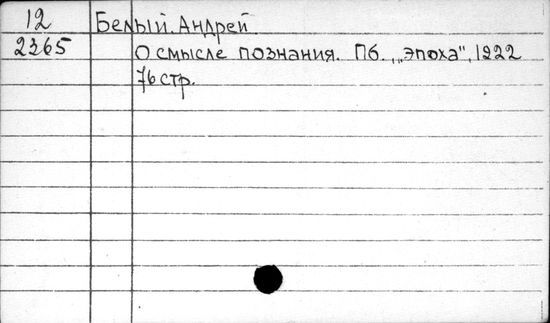 12 Белый. Андрей
2365 О смысле познания. Пб., „эпоха", 1922
76 стр.